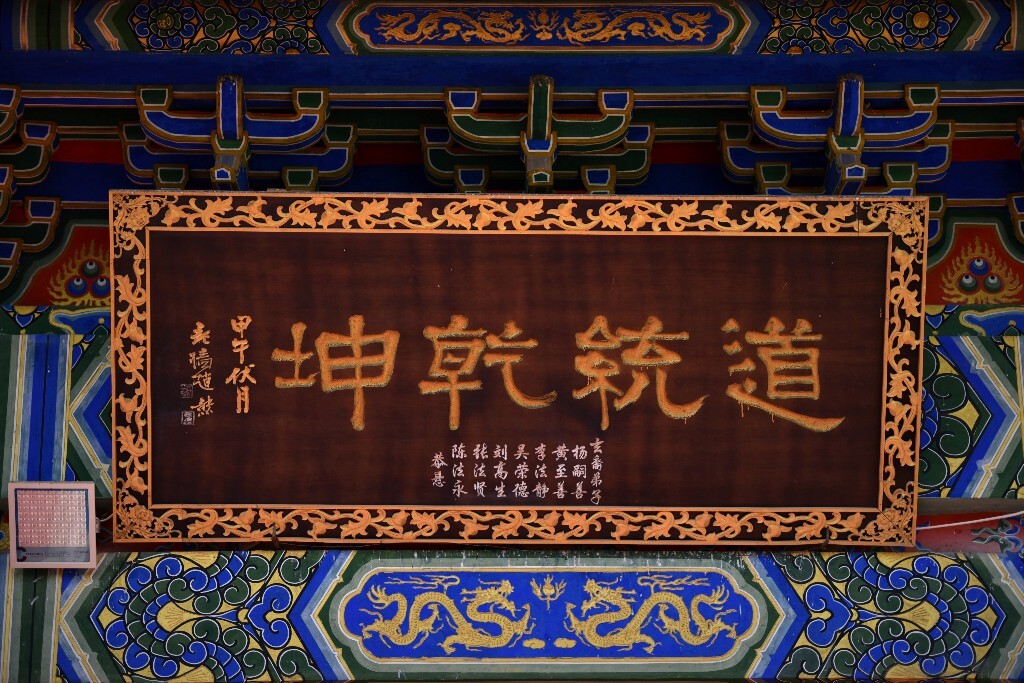 道統乾坤
玄裔弟子
杨嗣善
黄至善
李法静
吴荣德
刘高生
张法贤
陈法永
恭悬
甲午伏月